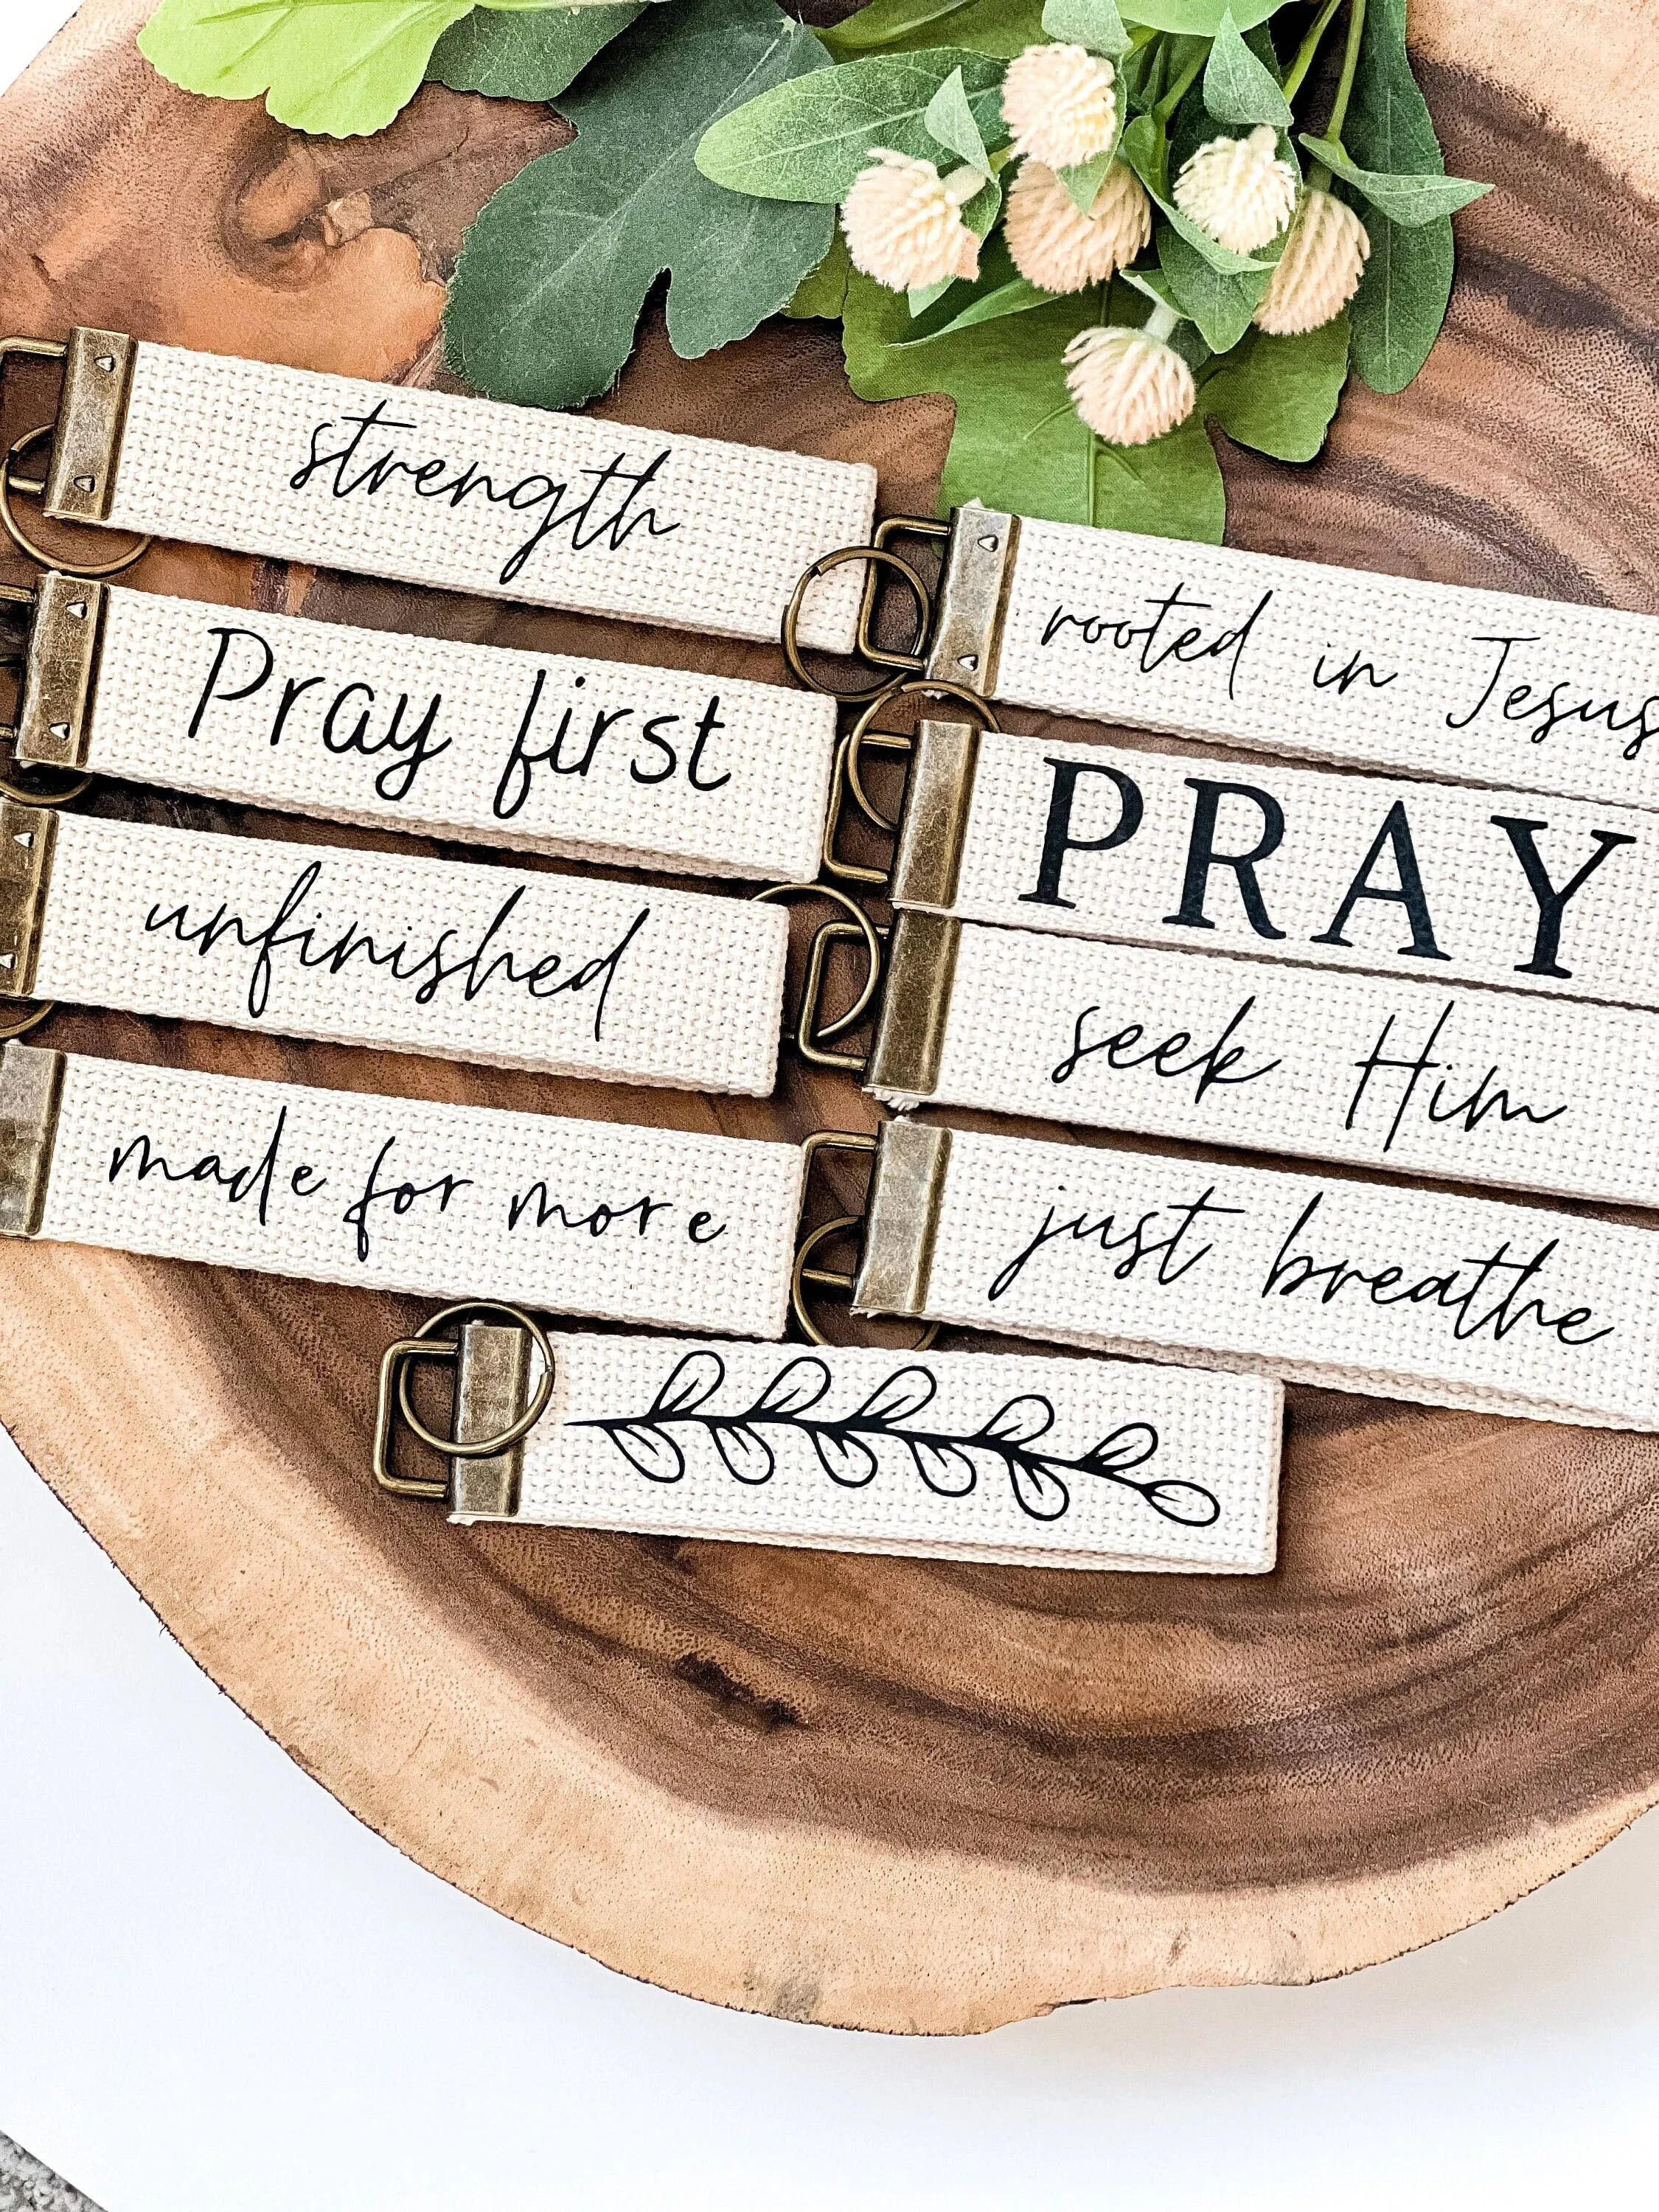 strength
Pray first
unfinished
made for more
rooted in Jesus
PRAY
seek Him
just breathe